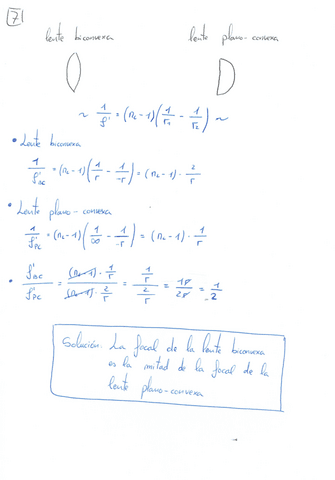 7
lente biconvexa lente plano-convexa
~ 1/f' = (n_L - 1)(1/r_1 - 1/r_2) ~
• Lente biconvexa
1/f'_BC = (n_L - 1)(1/r - 1/-r) = (n_L - 1) · 2/r
• Lente plano-convexa
1/f'_PC = (n_L - 1)(1/∞ - 1/-r) = (n_L - 1) · 1/r
• f'_BC/f'_PC = (n_L - 1) · 1/r / (n_L - 1) · 2/r = 1/r / 2/r = 1r/2r = 1/2
Solución: La focal de la lente biconvexa
es la mitad de la focal de la
lente plano-convexa